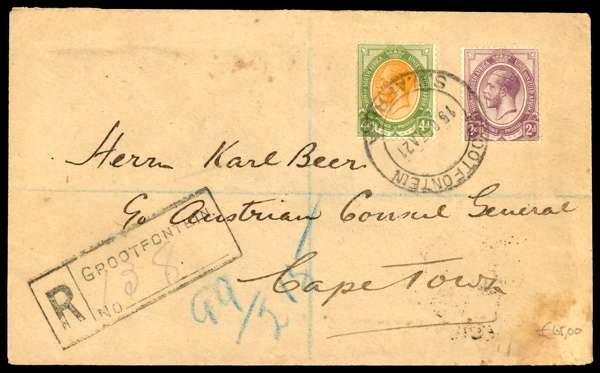 4d
2d
GROOTFONTEIN
Herrn Karl Beer
c/o Austrian Consul General
Cape Town
R
GROOTFONTEIN
No. 138
99/2
£65,00